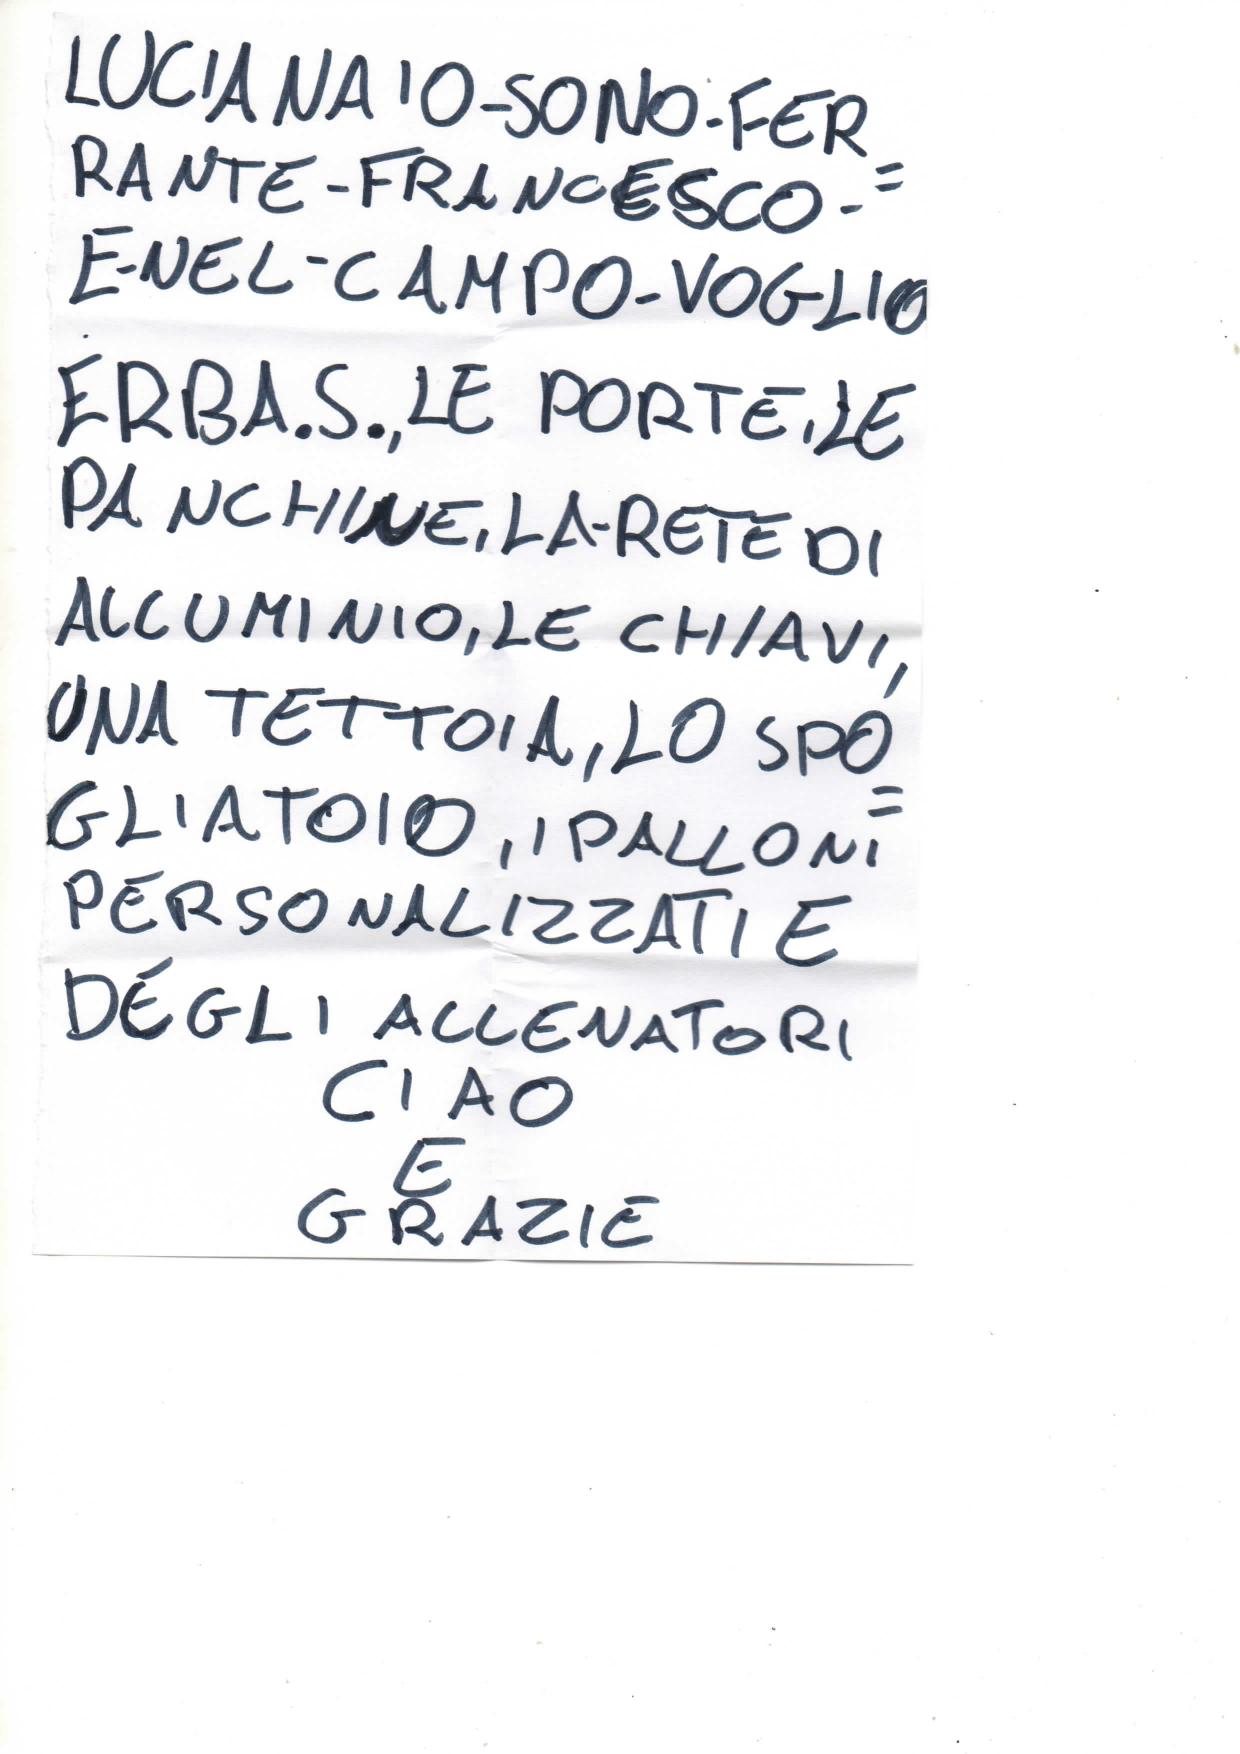 LUCIANA IO-SONO-FER
=
RANTE-FRANCESCO-
E-NEL-CAMPO-VOGLIO
ERBA.S.,LE PORTE,LE
PANCHINE,LA-RETE DI
ALLUMINIO,LE CHIAVI,
UNA TETTOIA,LO SPO
=
GLIATOIO,I PALLONI
PERSONALIZZATI E
DEGLI ALLENATORI
CIAO
E
GRAZIE